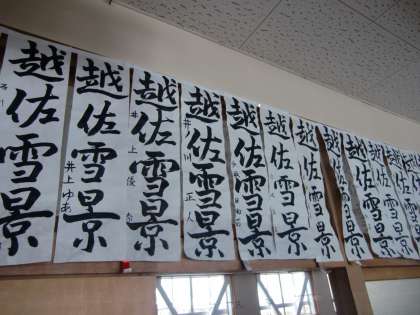 越佐雪景
越佐雪景
井上ゆあ
越佐雪景
井上
越佐雪景
川正人
越佐雪景
越佐雪景
越佐雪景
越佐雪景
越佐雪景
越佐雪景
越佐雪景